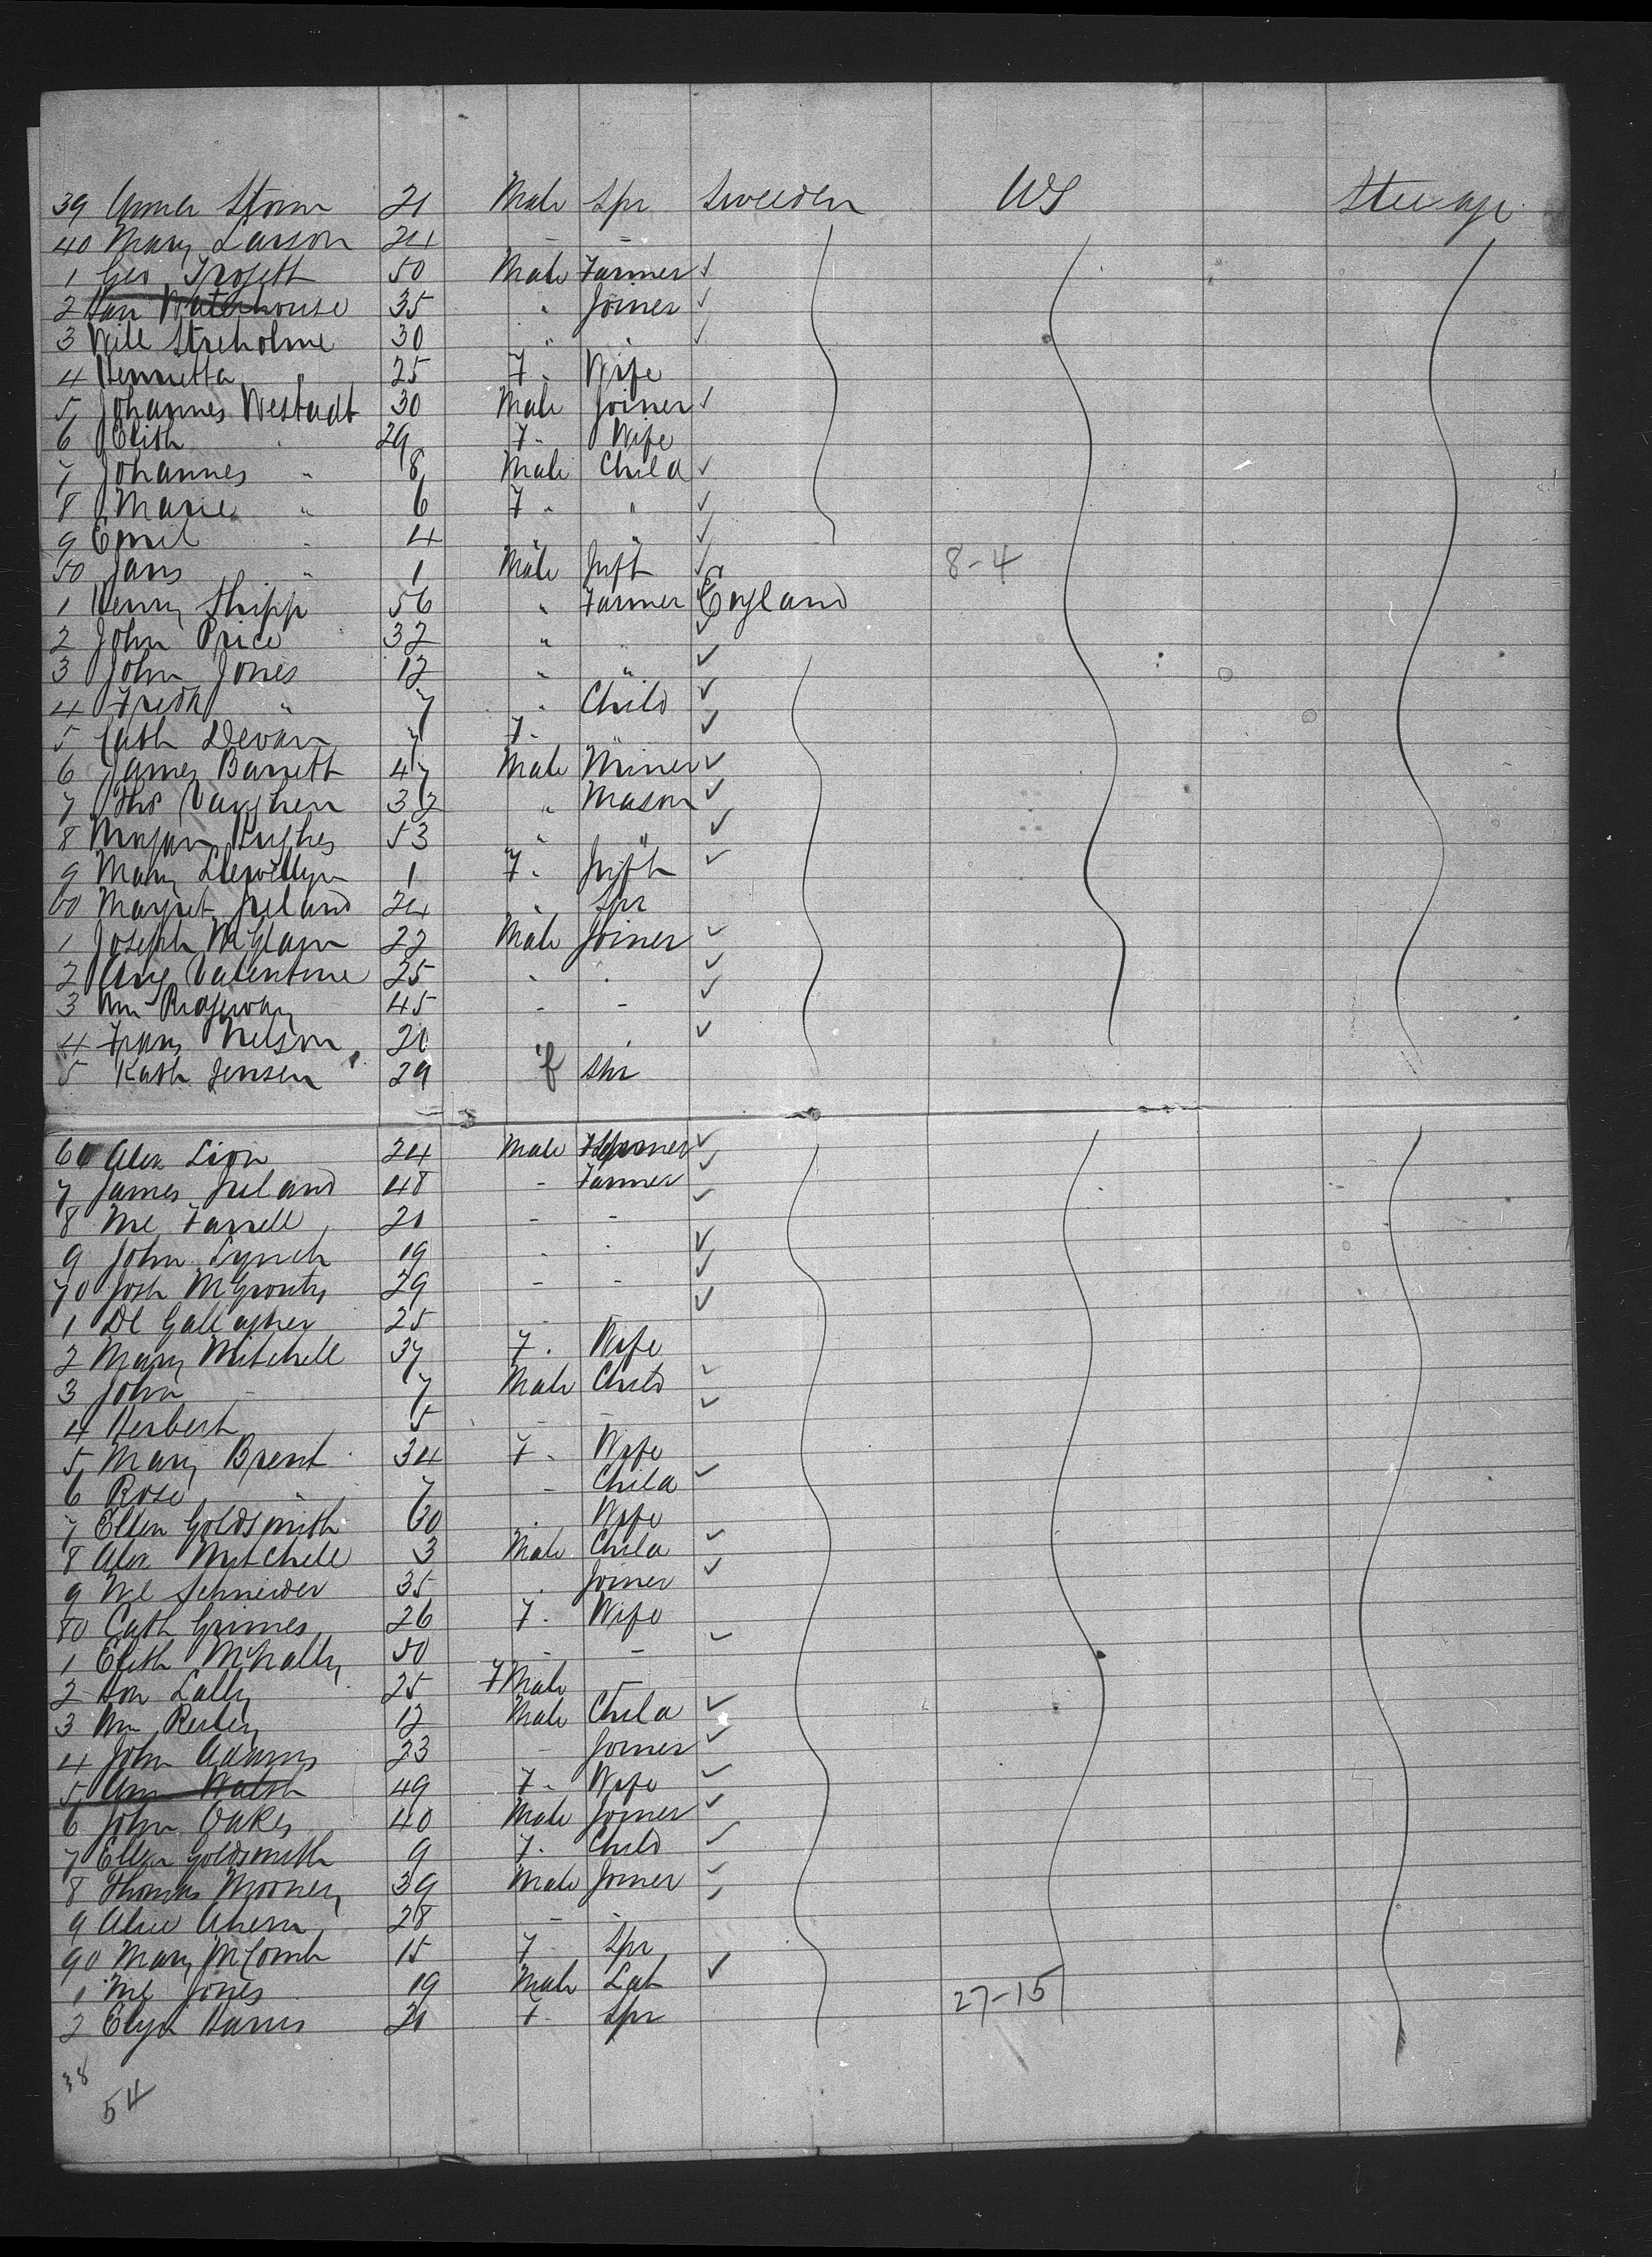 39 Anna Storm 21 Male Spr Sweeden US Steerage
40 Mary Larson 24 - -
1 Geo Trosett 50 Male Farmer ✓
2 Han Waterhouse 35 " Joiner ✓
3 Will Streholme 30 " " ✓
4 Henrietta " 25 F. Wife
5 Johannes Westadt 30 Male Joiner ✓
6 Elith " 29 F. Wife
7 Johannes " 8 Male Child ✓
8 Marie " 6 F. " ✓
9 Emil " 4 " " ✓
50 Jans " 1 Male Inft ✓ 8-4
1 Henry Shipp 56 " Farmer England
2 John Price 32 " " ✓
3 John Jones 12 " " ✓
4 Fredk " 7 " Child ✓
5 Cath Devan " F. " ✓
6 James Barrett 47 Male Miner ✓
7 Thos Vaughen 32 " Mason ✓
8 Morgan Hughes 53 " " ✓
9 Mary Llewellyn 1 F. Inft ✓
60 Margret Ireland 24 " Spr
1 Joseph McGlam 22 Male Joiner ✓
2 Aug Valentine 25 - - ✓
3 Wm Ridgeway 45 - - ✓
4 Frans Nelson 20 ✓
5 Kath Jensen 29 f Spr
66 Alex Lion 24 Male ✓
7 James Ireland 48 - Farmer ✓
8 Ml Farrell 21 - - ✓
9 John Lynch 19 - - ✓
70 Josh McGrouty 29 - - ✓
1 Dl Gallagher 25 - ✓
2 Mary Mitchell 37 F. Wife
3 John - 7 Male Child ✓
4 Herbert 5 - - ✓
5 Mary Brent 34 F. Wife
6 Rose " 7 - Child ✓
7 Ellen Goldsmith 30 . Wife
8 Alex Mitchell 3 Male Child ✓
9 Wl Schneider 35 . Joiner ✓
80 Cath Grimes 26 F. Wife
1 Elith McNally 50 - - ✓
2 Lally 25 FMale -
3 Wm 12 Male Child ✓
4 John Adams 23 - Joiner ✓
5 Ann Walsh 49 F. Wife ✓
6 John Oakes 40 Male Joiner ✓
7 Ellen Goldsmith 9 F. Child ✓
8 Thomas Mooney 39 Male Joiner ✓
9 Alice Ahern 28 - - ✓
90 Mary McComb 15 F Spr
1 Ml Jones 19 Male Lab ✓
2 Elyth Harris 21 F. Spr 27-15
38
54